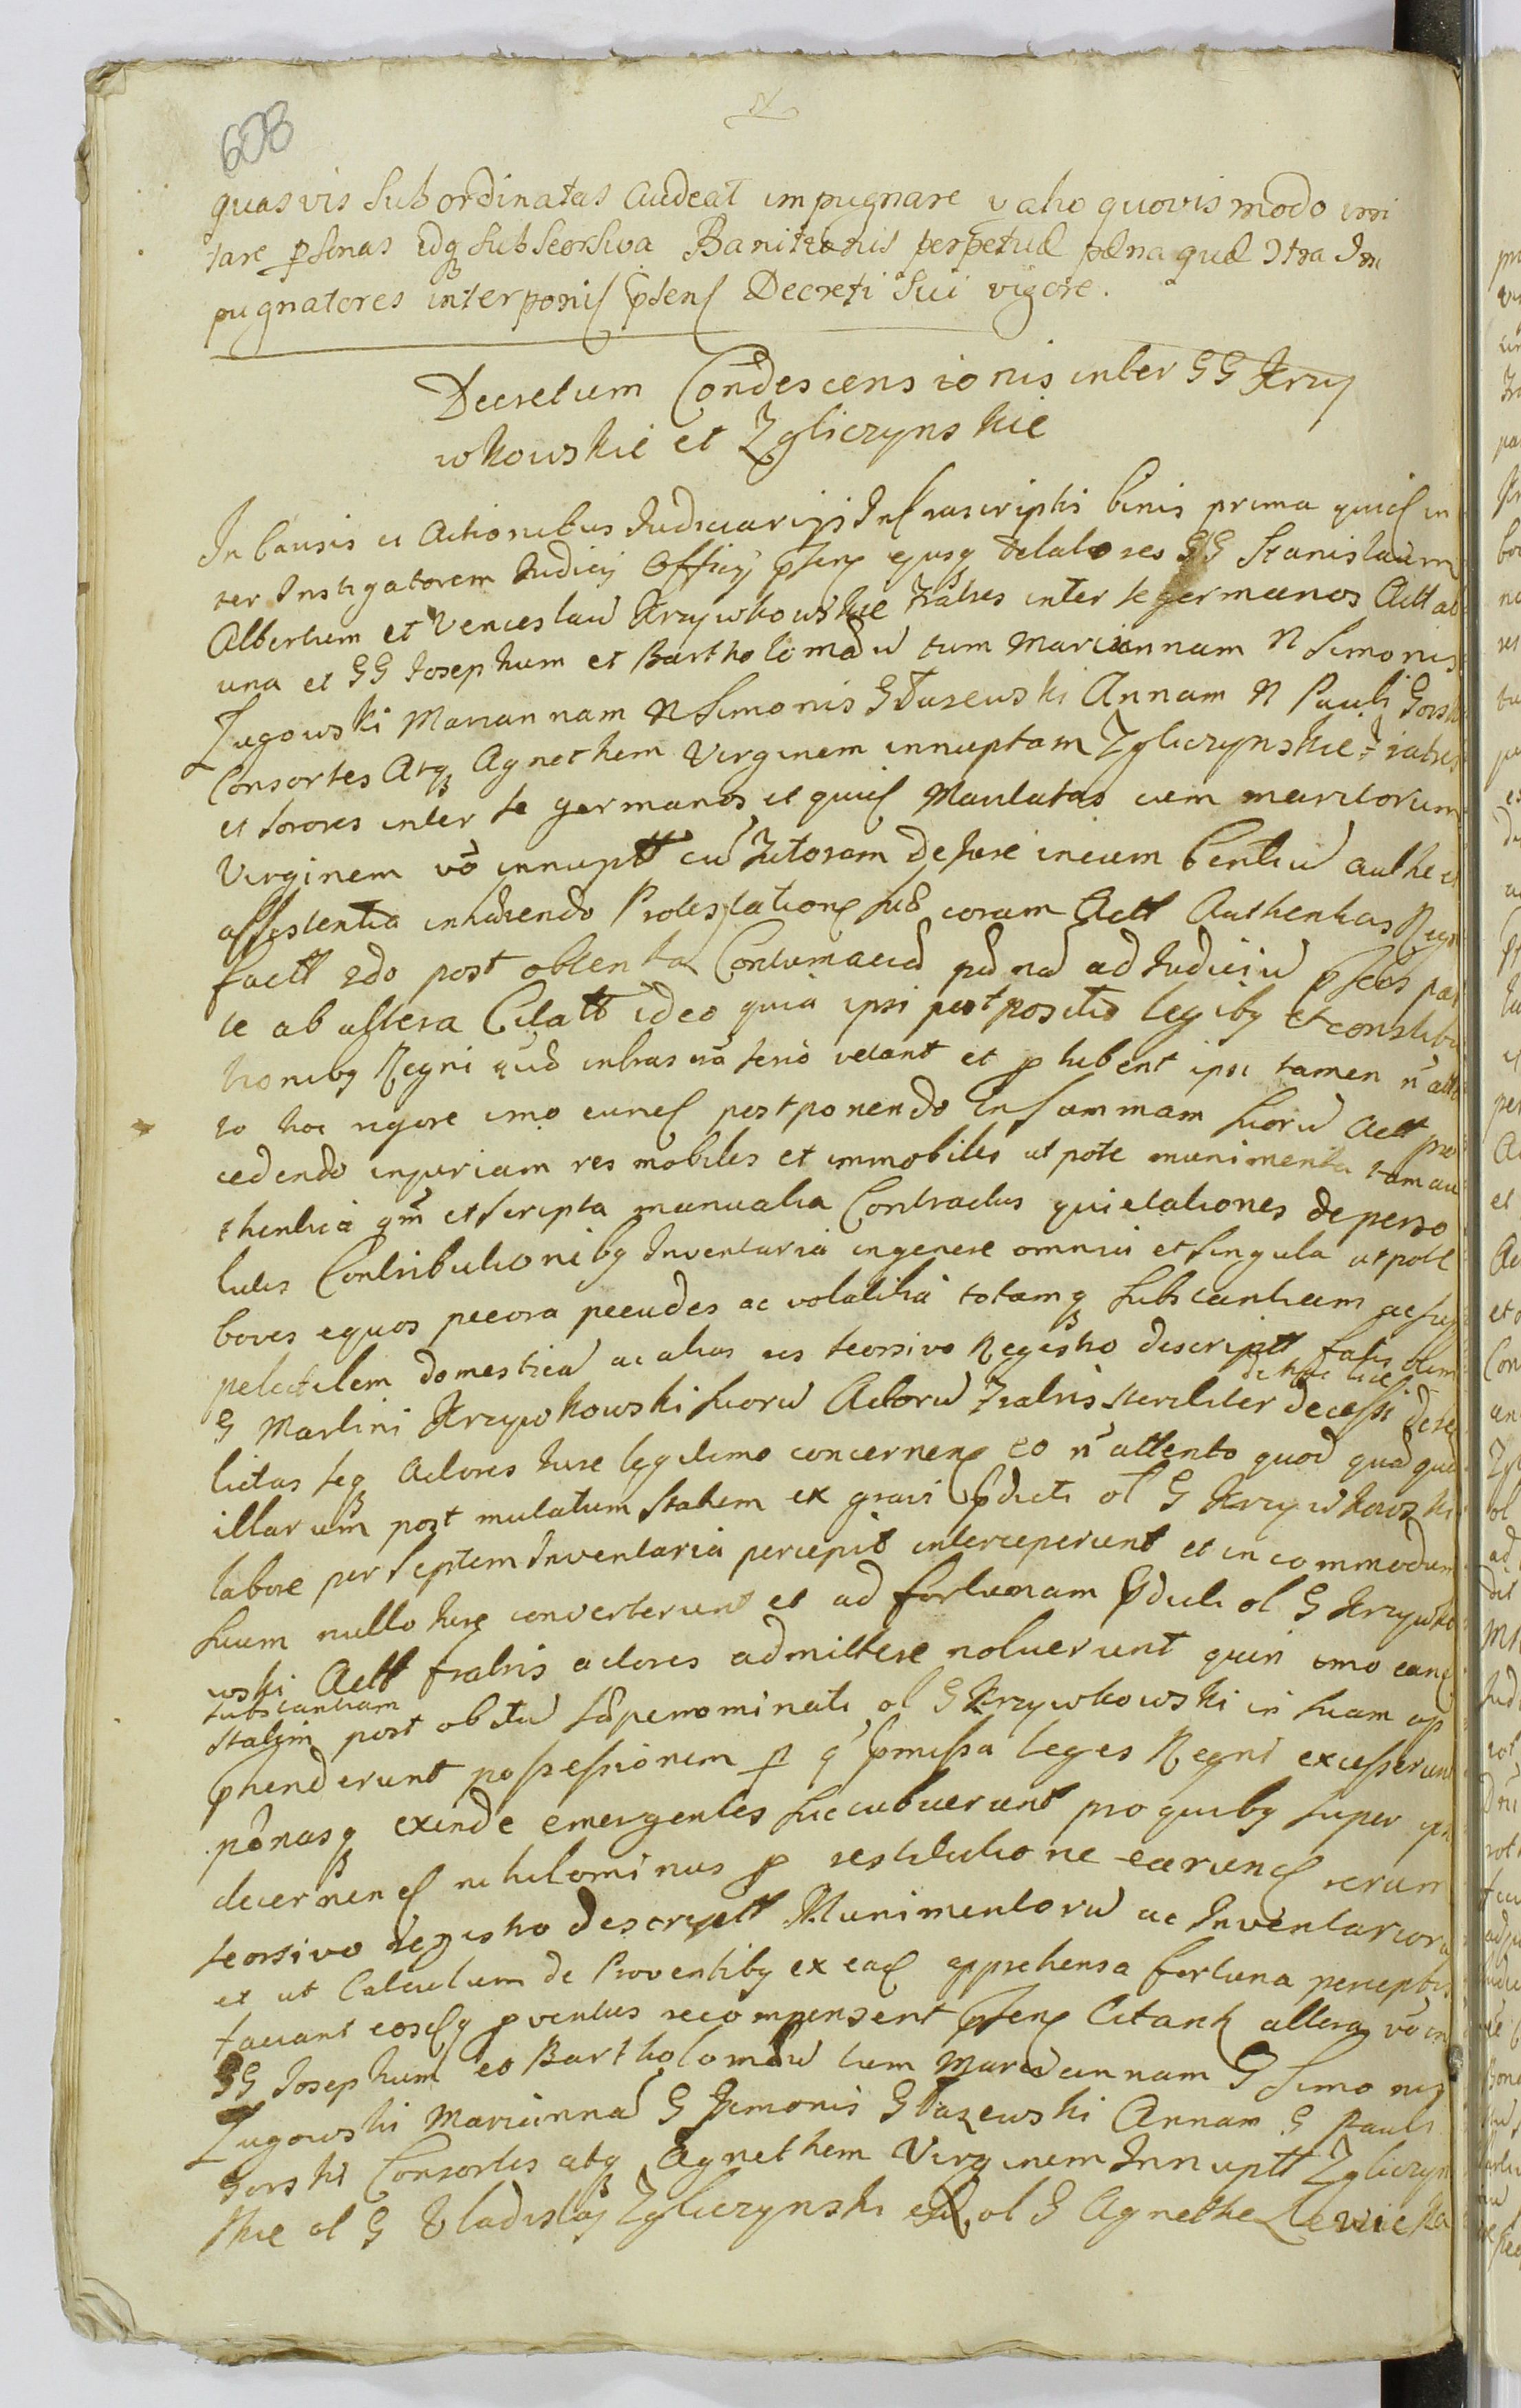 608
quasvis Subordinatas Audeat impugnare v alio quovis modo irri
tare psonas idq Sub Seorsiva Banitionis perpetuæ pœna quæ Ɔtra Im
pugnatores interponiɭ pſenɭ Decreti Sui vigore.
Decretum Condescensionis inter GG Krzy
wkowskie et Zgliczynskie
In Causis et Actionibus Judiciarijs Infrascriptis binis prima quidɭ in
ter Instigatorem Judicij Officij pſenɭ ejusq delatores GG Stanislaum
Albertum et Venceslaū Krzywkowskie Fratres inter se germanos Actt ab
una et GG Josephum et Bartholomæū tum Mariannam N Simonis
Zugowski Mariannam N Simonis Gtuzewski Annam N Pauli Gorski
Consortes Atq Agnethem Virginem innuptam Zgliczynskie Fratres
et sorores inter se germanos et quidɭ Maritatas cum maritorum
Virginem vō innuptt cū Tutorum de Jure
assistentia inhærendo Protestationɭ suæ coram Actt Authenticis Regni
factt 2do post obtenta Contumaciā ad Judiciū pſens par
te ab altera Citatt ideo quia ipsi postpositis legibq et constitu
tionibq Regni quæ vetant et phibent ipsi tamen ñ atten
to hoc rigore imo eundɭ postponendo In summam suorū Actt pro
cedendo injuriam res mobiles et immobiles ut pote munimenta tam au
thentica qm̄ et scripta manualia Contractus quietationes de perso
lutis Contributionibq Inventaria in genere omnia et singula ut pote
boves equos pecora pecudes ac volatilia totamq substantiam ac sup
pelectilem domesticā ac alias res seorsivo Regestro descriptt fatis olim
de hac luce
G Martini Krzywkowski suorū Actorū Fratris steriliter decessi dere
lictas seq Actores Jure legitimo concernenɭ eo ñ attento quod
illarum post mutatum statum ex gravi pdicti ol G Krzywkowski
labore per Septem Inventaria percepit interceperunt et in commodum
suum nullo Jure converterunt et ad fortunam pdicti ol G Krzywko
wski Actt fratris actores admittere noluerunt quin imo eandɭ
substantiam
statim post obitū sæpenominati ol G Krzywkowski in suam ap
prhenderunt possessionem p q pmissa leges Regni excesserunt
pœnasq exinde emergentes succubuerunt pro quibq super ips
decernenɭ nihilominus p restitutione earundɭ rerum
seorsivo regestro descriptt Munimentorū ac Inventariorū
et ut Calculum de Proventibq ex eadɭ apprehensa fortuna perceptis
faciant eosdɭq pventus recompensent pſenɭ Citantɭ altera vō in
GG Josephum et Bartholomæū tum Mariannam G Simonis
Zugowski Mariannā G Simonis Gtuzewski Annam G Pauli
Gorski Consortes atq Agnethem Virginem Innuptt Zgliczyn
skie ol G Vladislaj Zgliczynski ol G Agnethe Lewicka